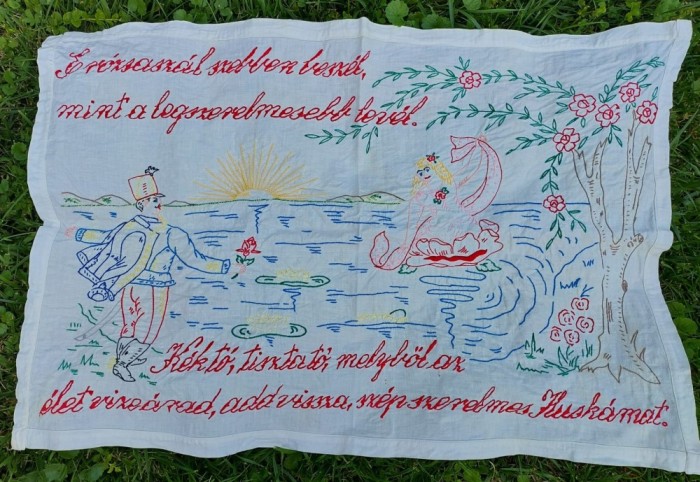 E rózsaszál szebben beszél,
mint a legszerelmesebb levél.
Kék tó, tiszta tó, melyből az
élet vize árad, add vissza, szép szerelmes Iluskámat.